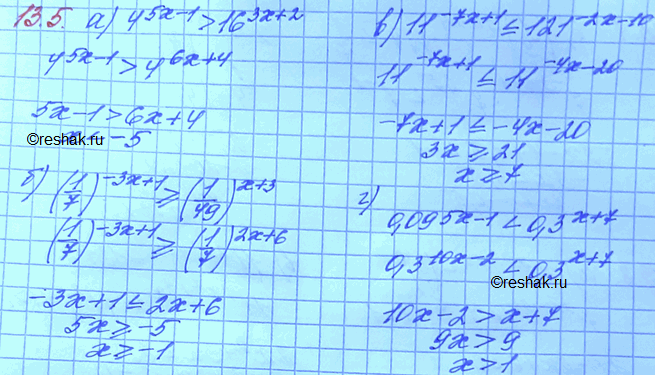 13.5. а) 4^(5x-1) > 16^(3x+2)
4^(5x-1) > 4^(6x+4)
5x-1 > 6x+4
x < -5
©reshak.ru
б) (1/7)^(-3x+1) ≥ (1/49)^(x+3)
(1/7)^(-3x+1) ≥ (1/7)^(2x+6)
-3x+1 ≤ 2x+6
5x ≥ -5
x ≥ -1
в) 11^(-7x+1) ≤ 121^(-2x-10)
11^(-7x+1) ≤ 11^(-4x-20)
-7x+1 ≤ -4x-20
3x ≥ 21
x ≥ 7
г)
0,09^(5x-1) < 0,3^(x+7)
0,3^(10x-2) < 0,3^(x+7)
10x-2 > x+7
9x > 9
x > 1
©reshak.ru